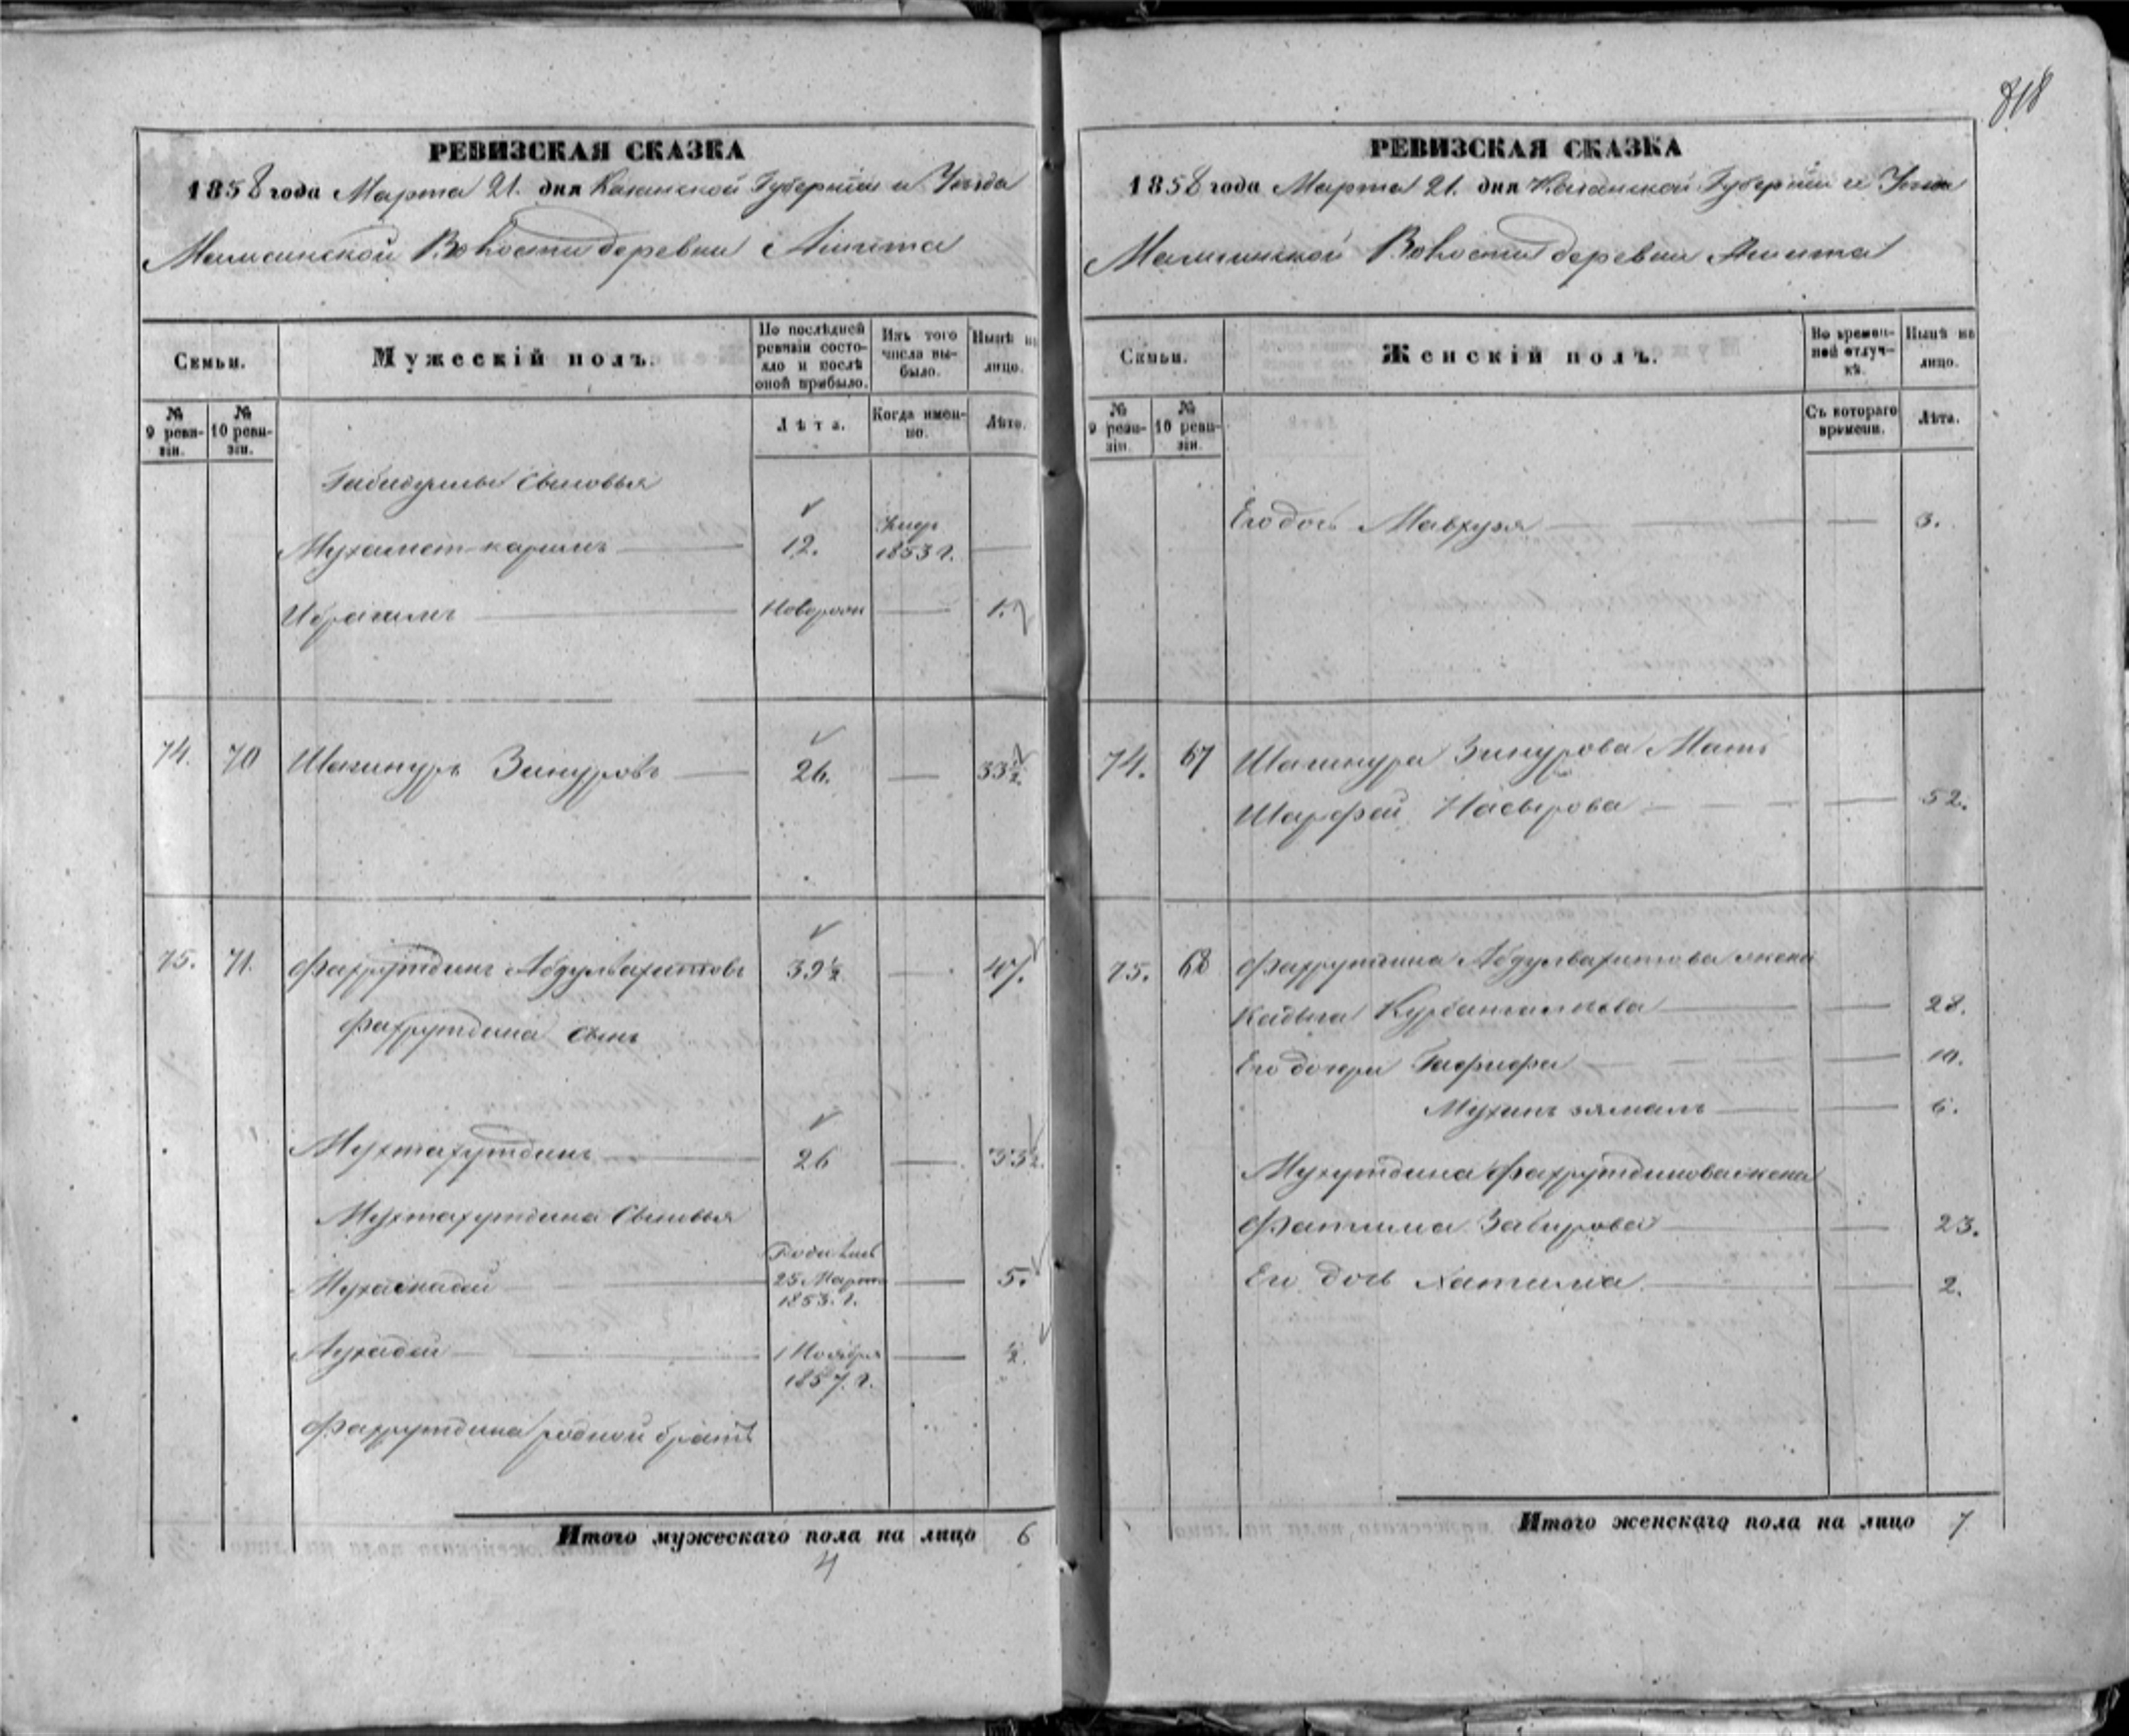 818
РЕВИЗСКАЯ СКАЗКА
1858 года Марта 21. дня Казанской Губернiи и Уѣзда
Мамсинской Волости деревни Ашита
Семьи.
Мужескiй полъ.
По послѣдней ревизiи состояло и послѣ оной прибыло.
Изъ того числа выбыло.
Нынѣ на лицо.
№ 9 ревизiи.
№ 10 ревизiи.
Лѣта.
Когда именно.
Лѣта.
Габидуллы сыновья
Мухамет-каримъ 12. Умеръ 1853 г.
Ибрагимъ Новорож 1.
74. 70 Шагинуръ Зинуровъ 26. 33½.
75. 71. Фахрутдинъ Абдулвахитовъ 39½ 47.
Фахрутдина сынъ
Мухтахутдинъ 26 33½.
Мухтахутдина сыновья
Родился
25 Марта 5.
1853. г.
1 Ноября ½.
1857. г.
Фахрутдина родной братъ
Итого мужескаго пола на лицо 6
4
РЕВИЗСКАЯ СКАЗКА
1858 года Марта 21. дня Казанской Губернiи и Уѣзда
Мамсинской Волости деревни Ашита
Семьи.
Женскiй полъ.
Во временной отлучкѣ.
Нынѣ на лицо.
№ 9 ревизiи.
№ 10 ревизiи.
Съ котораго времени.
Лѣта.
Его дочь Мавхузя 3.
74. 67 Шагинура Зинурова Мать
Шарфей Насырова 52.
75. 68 Фахрутдина Абдулвахитова жена
Кадыга 28.
Его дочери Гафифа 10.
6.
Мухутдина Фахрутдинова жена
Фатима Забирова 23.
Его дочь Хатима 2.
Итого женскаго пола на лицо 7